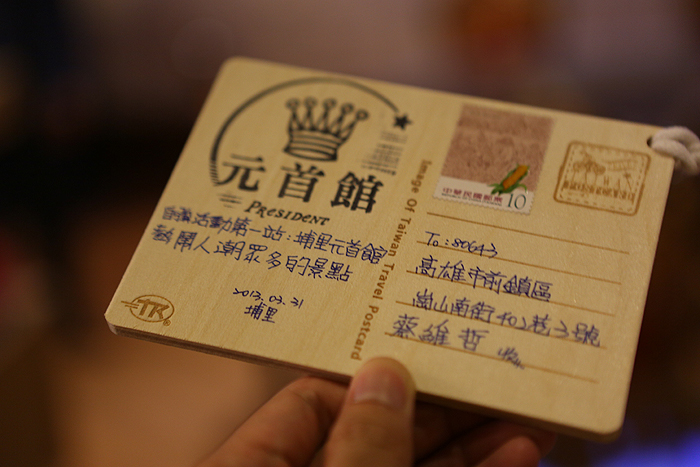 元首館
PRESIDENT
自強活動第一站:埔里元首館
熱鬧人潮眾多的景點
2013.03.31
埔里
TR
Image Of Taiwan Travel Postcard
中華民國郵票
10
To: 80643
高雄市前鎮區
崗山南街402巷3號
蔡維哲 收